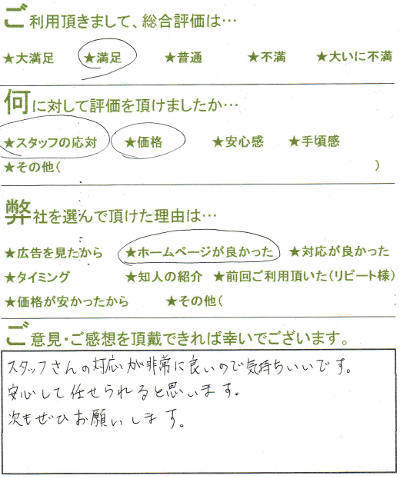 ご利用頂きまして、総合評価は…
★大満足 ★満足 ★普通 ★不満 ★大いに不満
何に対して評価を頂けましたか…
★スタッフの応対 ★価格 ★安心感 ★手頃感
★その他( )
弊社を選んで頂けた理由は…
★広告を見たから ★ホームページが良かった ★対応が良かった
★タイミング ★知人の紹介 ★前回ご利用頂いた(リピート様)
★価格が安かったから ★その他(
ご意見・ご感想を頂戴できれば幸いでございます。
スタッフさんの対応が非常に良いので気持ちいいです。
安心して任せられると思います。
次もぜひお願いします。